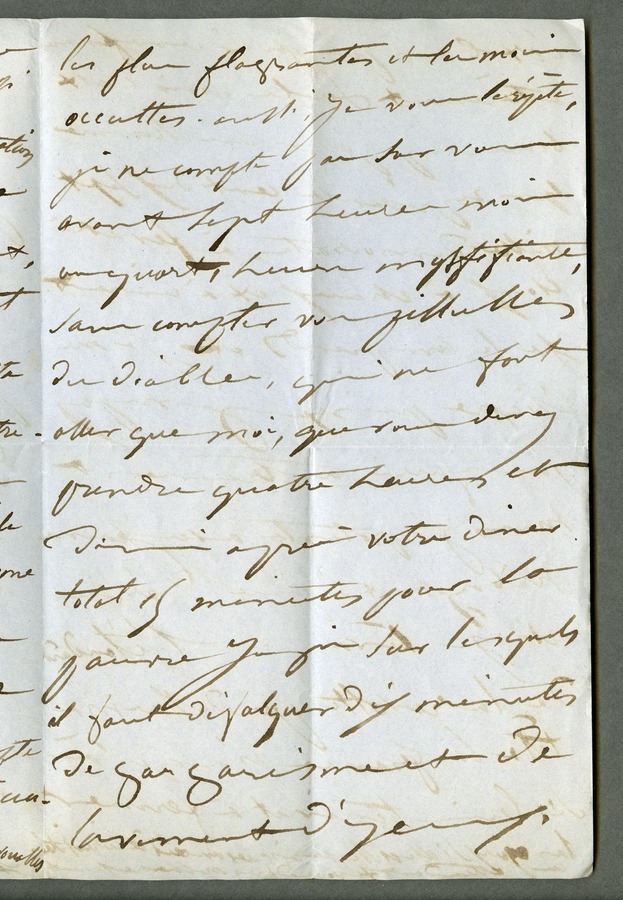 les plus flagrantes et les moins
occultes. aussi, je vous le répète,
je ne compte pas sur vous
avant sept heures moins
un quart, heure
sans compter vos pillulles
du diable, qui ne font
aller que moi, que vous devez
prendre quatre heures et
demi après votre diner.
total 15 minutes pour la
pauvre sur lesquels
il faut défalquer dix minutes
de gargarisme et de
lavement d'yeux.